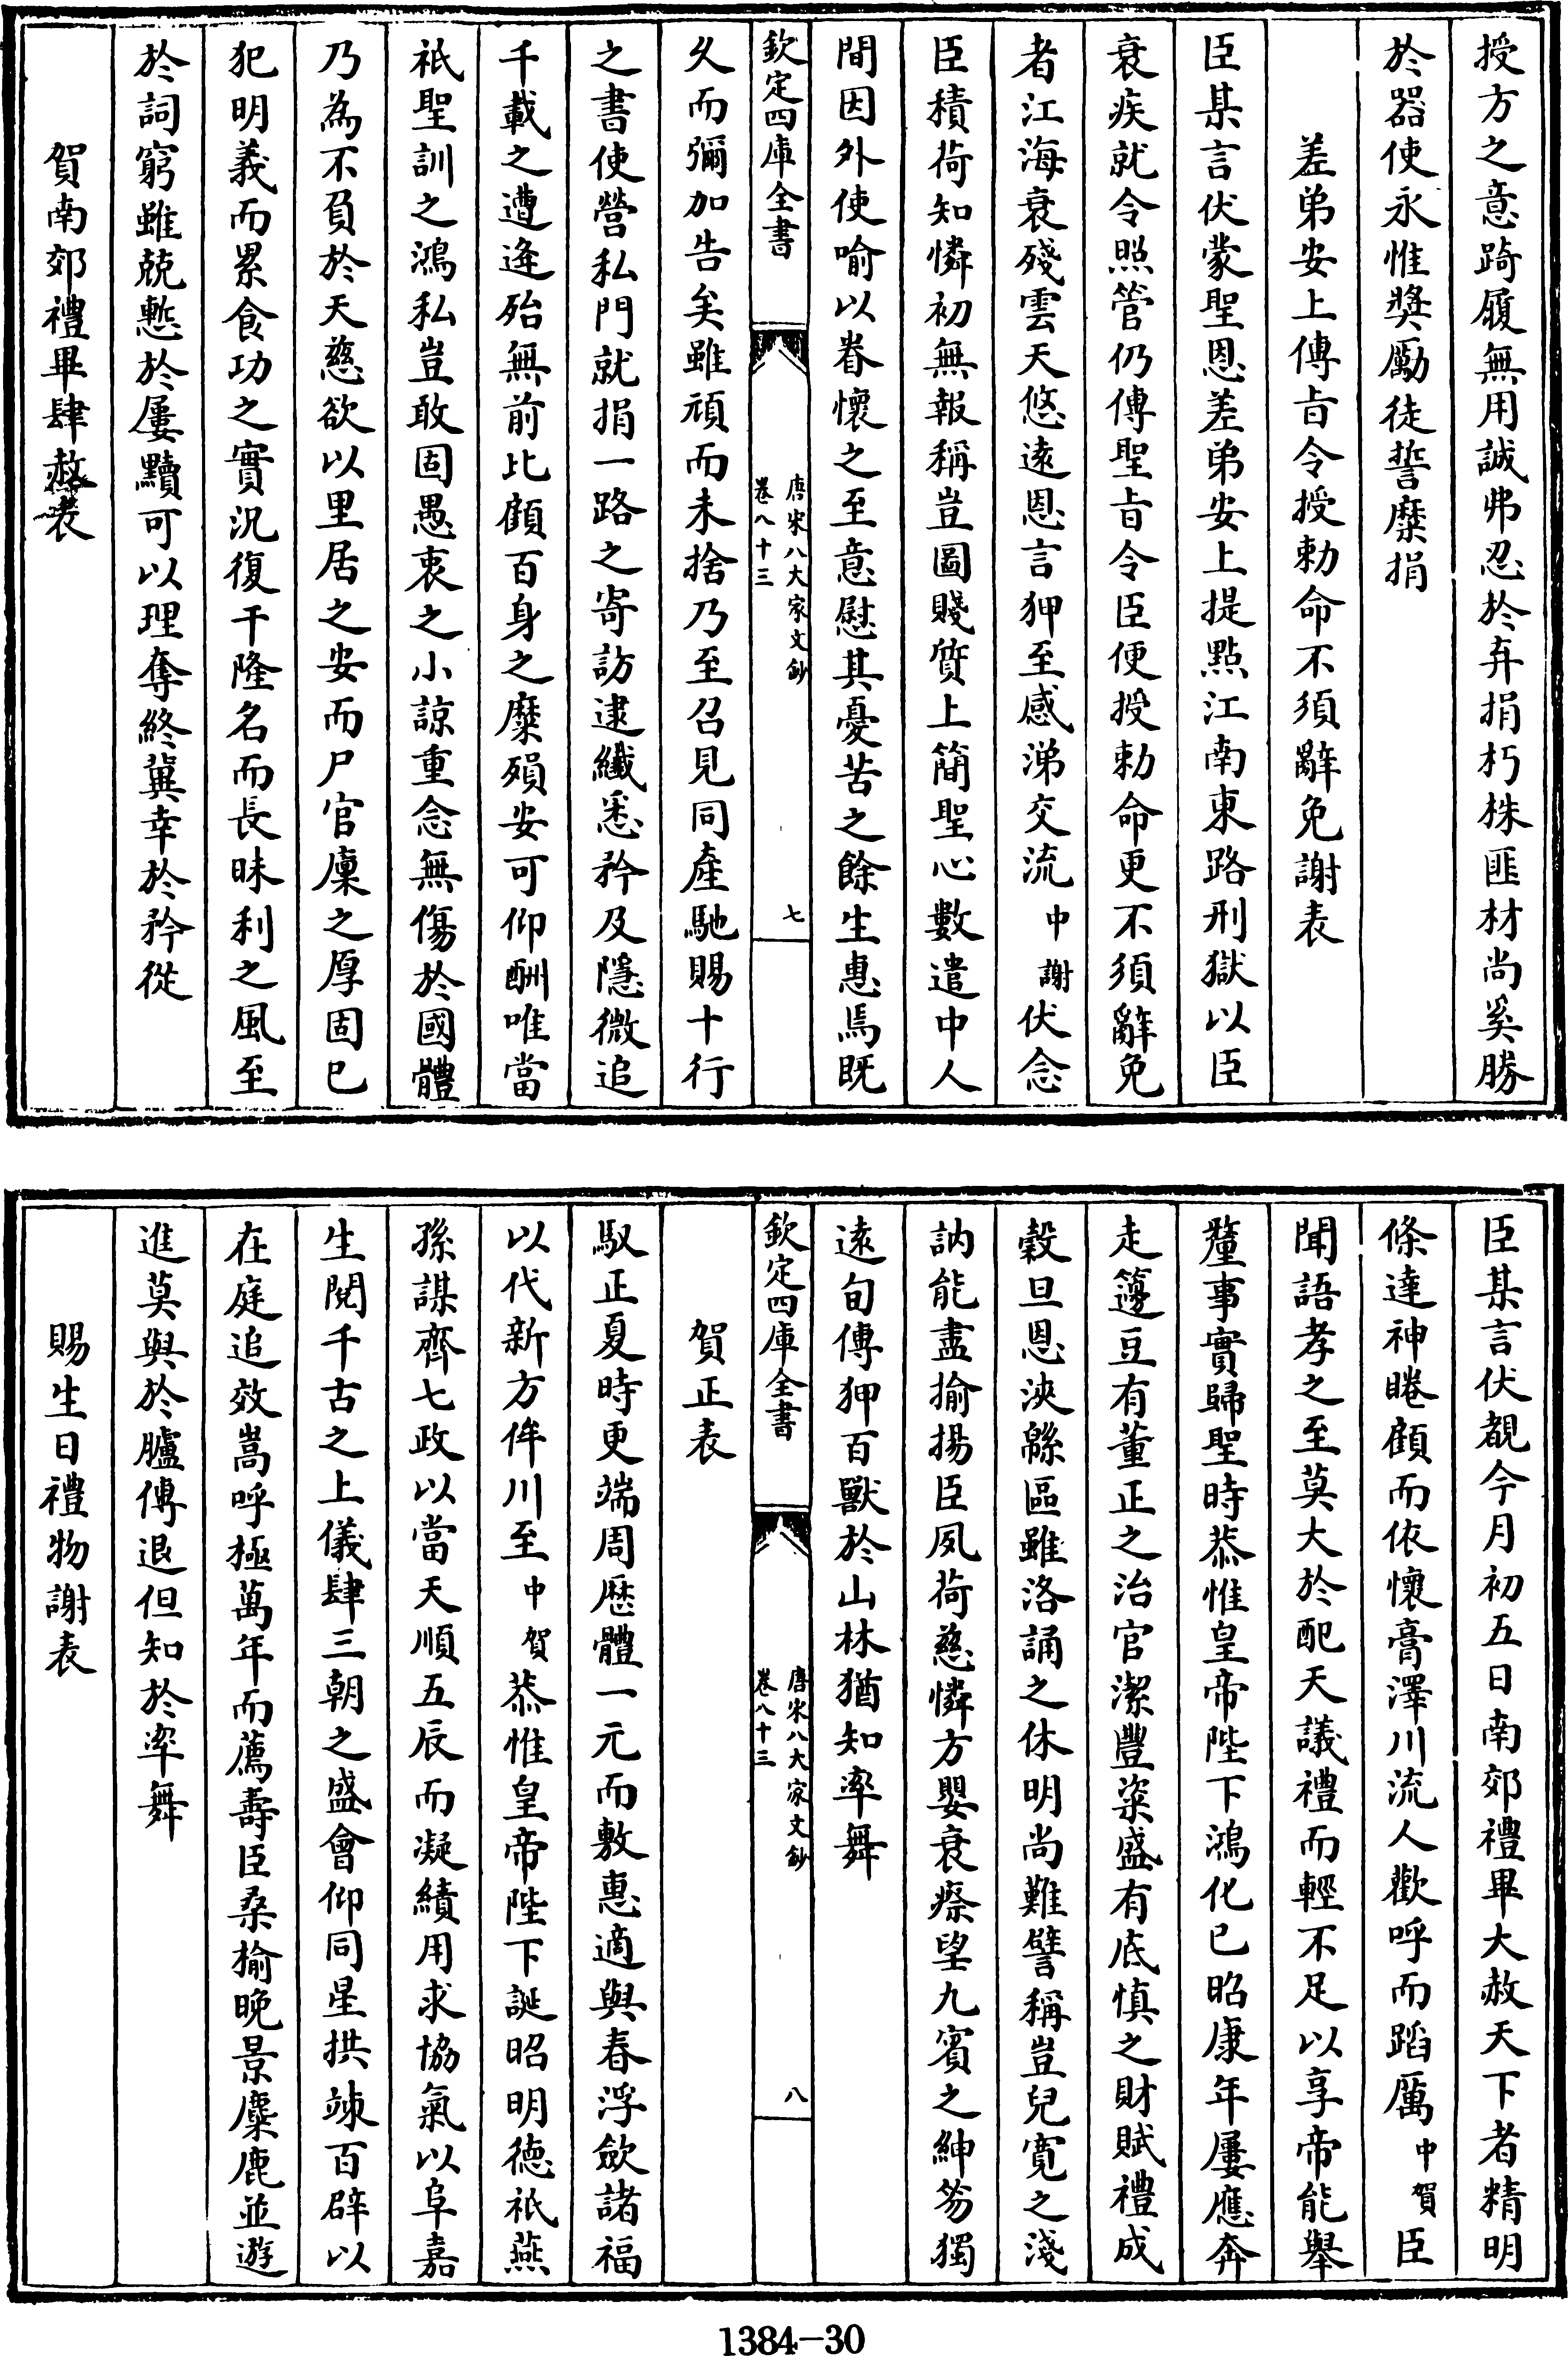 授方之意踦履無用誠弗忍於弃捐朽株匪材尚奚勝
於器使永惟獎勵徒誓糜捐
差弟安上傳㫖令授勅命不須辭免謝表
臣某言伏蒙聖恩差弟安上提點江南東路刑獄以臣
衰疾就令照管仍傳聖㫖令臣便授勅命更不須辭免
者江海衰殘雲天悠遠恩言狎至感涕交流中謝伏念
臣積荷知憐初無報稱豈圖賤質上簡聖心數遣中人
間因外使喻以眷懷之至意慰其憂苦之餘生惠焉既
欽定四庫全書
唐宋八大家文鈔
卷八十三
七
久而彌加告矣雖頑而未捨乃至召見同產馳賜十行
之書使營私門就捐一路之寄訪逮纖悉矜及隱微追
千載之遭逢殆無前比顧百身之糜殞安可仰酬唯當
祇聖訓之鴻私豈敢固愚衷之小諒重念無傷於國體
乃為不負於天慈欲以里居之安而尸官廩之厚固已
犯明義而累食功之實況復干隆名而長昧利之風至
於詞窮雖兢慙於屢黷可以理奪終冀幸於矜從
賀南郊禮畢肆赦表
臣某言伏覩今月初五日南郊禮畢大赦天下者精明
條達神睠顧而依懷膏澤川流人歡呼而蹈厲中賀臣
聞語孝之至莫大於配天議禮而輕不足以享帝能舉
釐事實歸聖時恭惟皇帝陛下鴻化已昭康年屢應奔
走籩豆有董正之治官潔豐粢盛有底慎之財賦禮成
穀旦恩浹緜區雖洛誦之休明尚難譬稱豈兒寛之淺
訥能盡揄揚臣夙荷慈憐方嬰衰瘵望九賓之紳笏獨
遠旬傳狎百獸於山林猶知率舞
欽定四庫全書
唐宋八大家文鈔
卷八十三
八
賀正表
馭正夏時更端周歴體一元而敷惠適與春浮歛諸福
以代新方侔川至中賀恭惟皇帝陛下誕昭明德祇燕
孫謀齊七政以當天順五辰而凝績用求協氣以阜嘉
生閲千古之上儀肆三朝之盛會仰同星拱竦百辟以
在庭追效嵩呼極萬年而薦壽臣桑榆晚景麋鹿並遊
進莫與於臚傳退但知於率舞
賜生日禮物謝表
1384-30